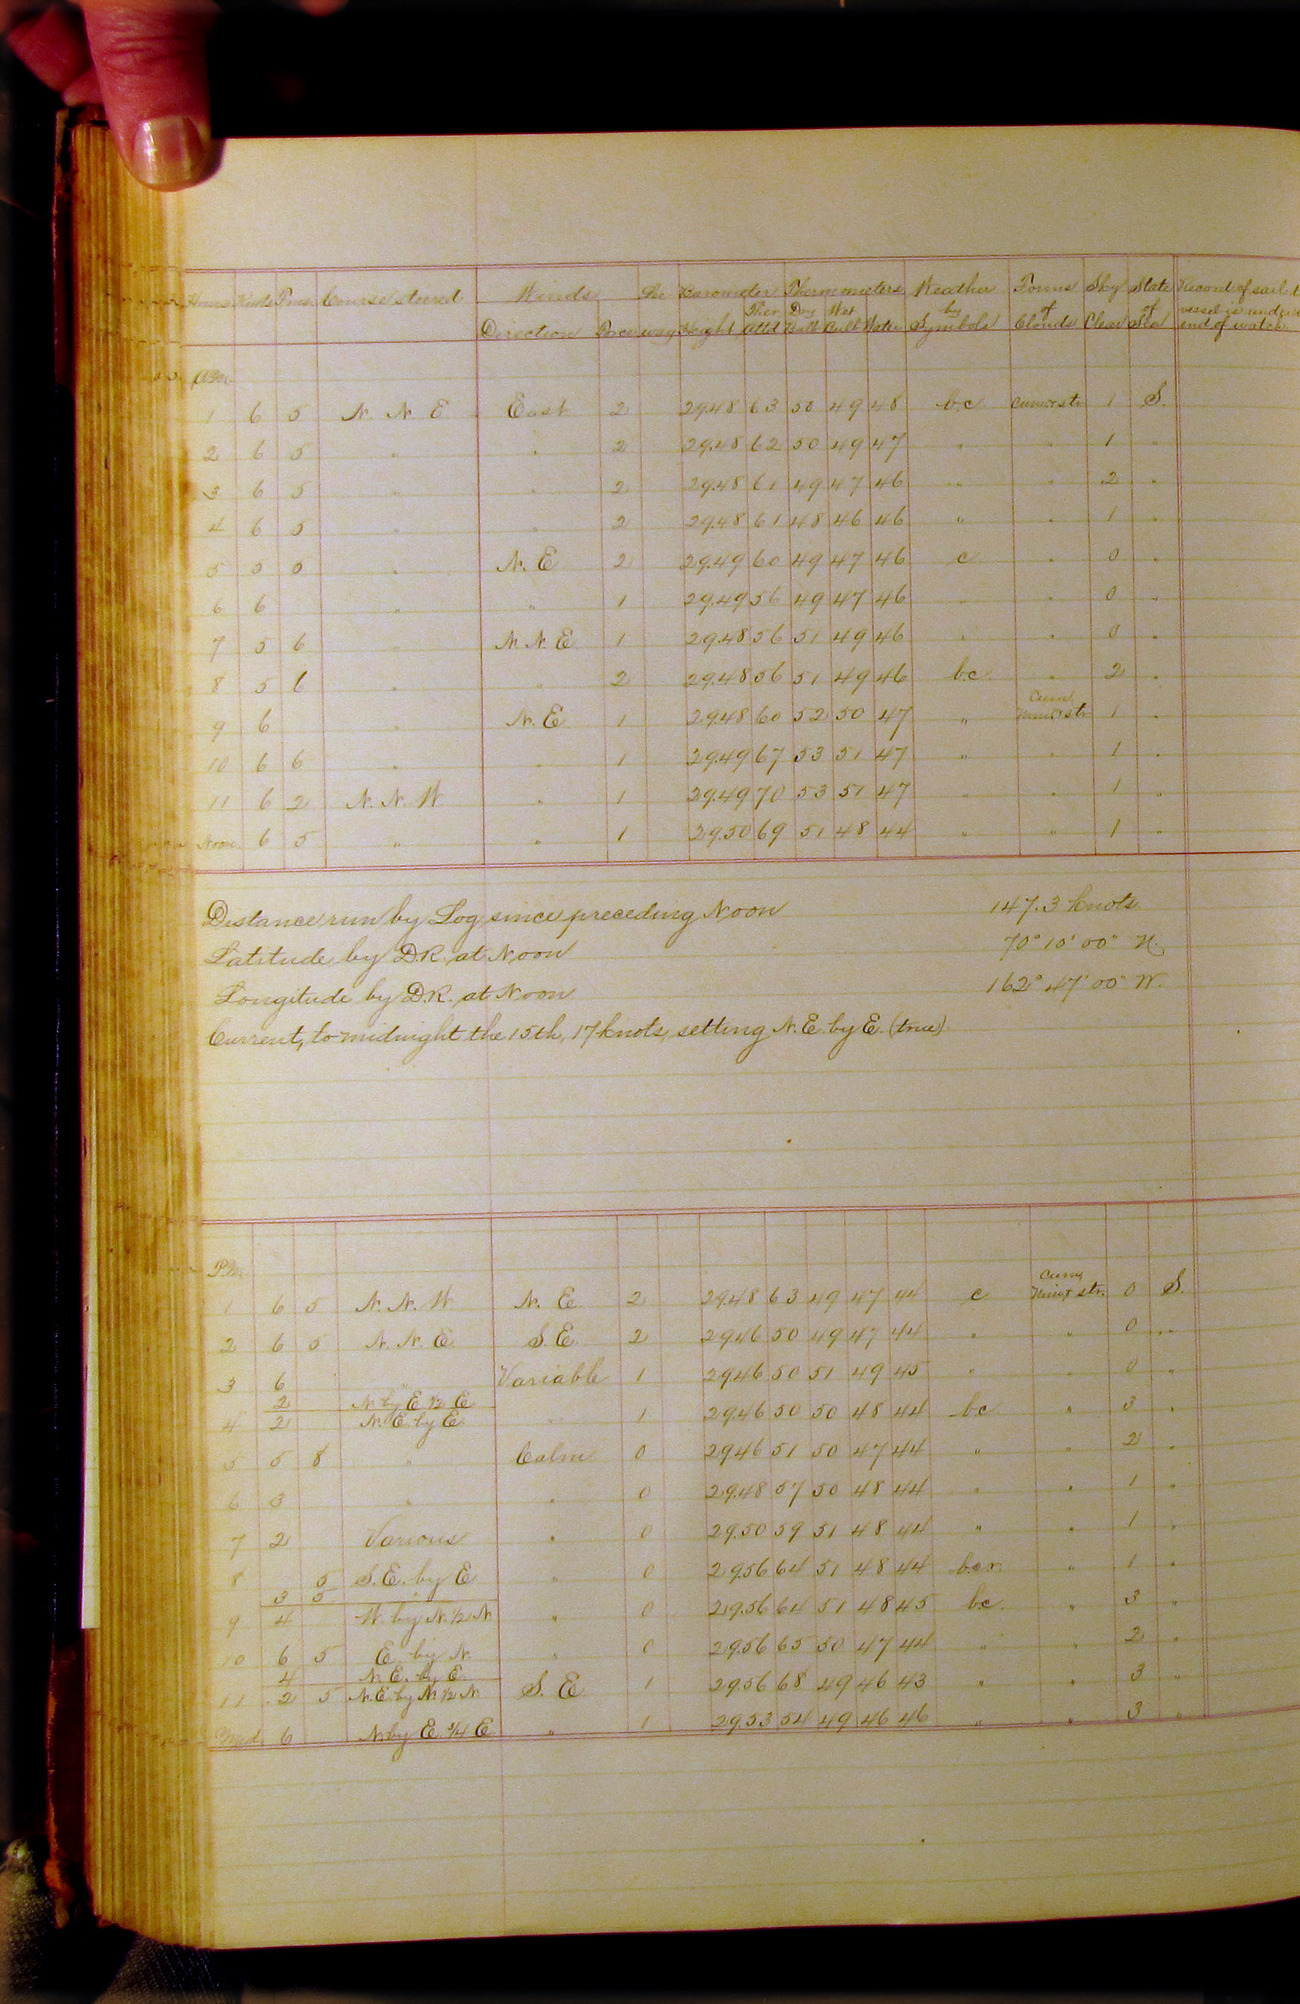 Hours Knots Course steered Winds Lee Barometer Thermometers Weather Forms Sky State Record of sail
Direction Force way Height Ther Att'd Dry Bulb Wet Bulb Water by Symbols of Clouds Clear of Sea vessel is under end of watch
AM
1 6 5 N. N. E East 2 29.48 63 50 49 48 b.c cum & str 1 S.
2 6 5 " " 2 29.48 62 50 49 47 " " 1 "
3 6 5 " " 2 29.48 61 49 47 46 " " 2 "
4 6 5 " " 2 29.48 61 48 46 46 " " 1 "
5 5 0 " N. E 2 29.49 60 49 47 46 c " 0 "
6 6 " " 1 29.49 56 49 47 46 " " 0 "
7 5 6 " N. N. E 1 29.48 56 51 49 46 " " 0 "
8 5 6 " " 2 29.48 56 51 49 46 b.c " 2 "
9 6 " N. E 1 29.48 60 52 50 47 " Cum Nim & str 1 "
10 6 6 " " 1 29.49 67 53 51 47 " " 1 "
11 6 2 N. N. W " 1 29.49 70 53 51 47 " " 1 "
Noon 6 5 " " 1 29.50 69 51 48 44 " " 1 "
Distance run by Log since preceding Noon 147.3 knots.
Latitude by D.R. at Noon 70° 10' 00" N.
Longitude by D.R. at Noon 162° 47' 00" W.
Current, to midnight the 15th, 17 knots, setting N. E. by E. (true).
P.M.
1 6 5 N. N. W N. E. 2 29.48 63 49 47 44 c Cum Nim & str. 0 S.
2 6 5 N. N. E. S. E. 2 29.46 50 49 47 44 " " 0 "
3 6 " Variable 1 29.46 50 51 49 45 " " 0 "
2 N. by E. 1/2 E
4 2 N. E. by E. " 1 29.46 50 50 48 44 bc " 3 "
5 5 8 " Calm 0 29.46 51 50 47 44 " " 2 "
6 3 " " 0 29.48 57 50 48 44 " " 1 "
7 2 Various " 0 29.50 59 51 48 44 " " 1 "
8 5 S. E. by E " 0 29.56 64 51 48 44 b.c.r. " 1 "
3 5 "
9 4 W. by N. 1/2 N " 0 29.56 64 51 48 45 b.c. " 3 "
10 6 5 E. by N. " 0 29.56 65 50 47 44 " " 2 "
4 N. E. by E.
11 2 5 N. E by N. 1/2 N S. E 1 29.56 68 49 46 43 " " 3 "
Mid. 6 N. by E. 3/4 E " 1 29.53 54 49 46 46 " " 3 "